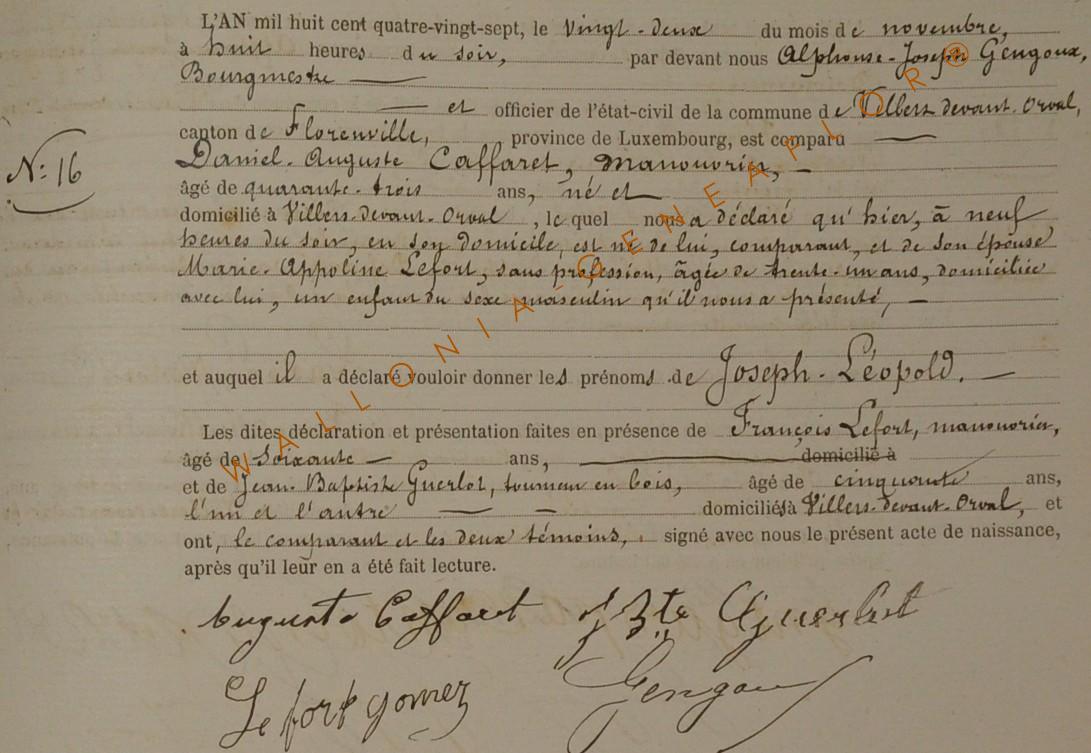 L'AN mil huit cent quatre-vingt-sept, le vingt-deux du mois de novembre,
à huit heures du soir, par devant nous Alphonse-Joseph Gengoux,
Bourgmestre
et officier de l'état-civil de la commune de Villers devant-Orval,
canton de Florenville, province de Luxembourg, est comparu
N° 16
Daniel-Auguste Caffaret, manouvrier,
âgé de quarante-trois ans, né et
domicilié à Villers-devant-Orval, lequel nous a déclaré qu'hier, à neuf
heures du soir, en son domicile, est né de lui, comparant, et de son épouse
Marie-Appoline Lefort, sans profession, âgée de trente-un ans, domiciliée
avec lui, un enfant du sexe masculin qu'il nous a présenté,
et auquel il a déclaré vouloir donner les prénoms de Joseph-Léopold.
Les dites déclaration et présentation faites en présence de François Lefort, manouvrier,
âgé de soixante ans, domicilié à
et de Jean-Baptiste Guerlot, tourneur en bois, âgé de cinquante ans,
l'un et l'autre domiciliés à Villers-devant-Orval, et
ont, le comparant et les deux témoins, signé avec nous le présent acte de naissance,
après qu'il leur en a été fait lecture.
Auguste Caffaret J Bte Guerlot
Lefort gomez Gengoux
WALLONIA GENEAPI OR ®